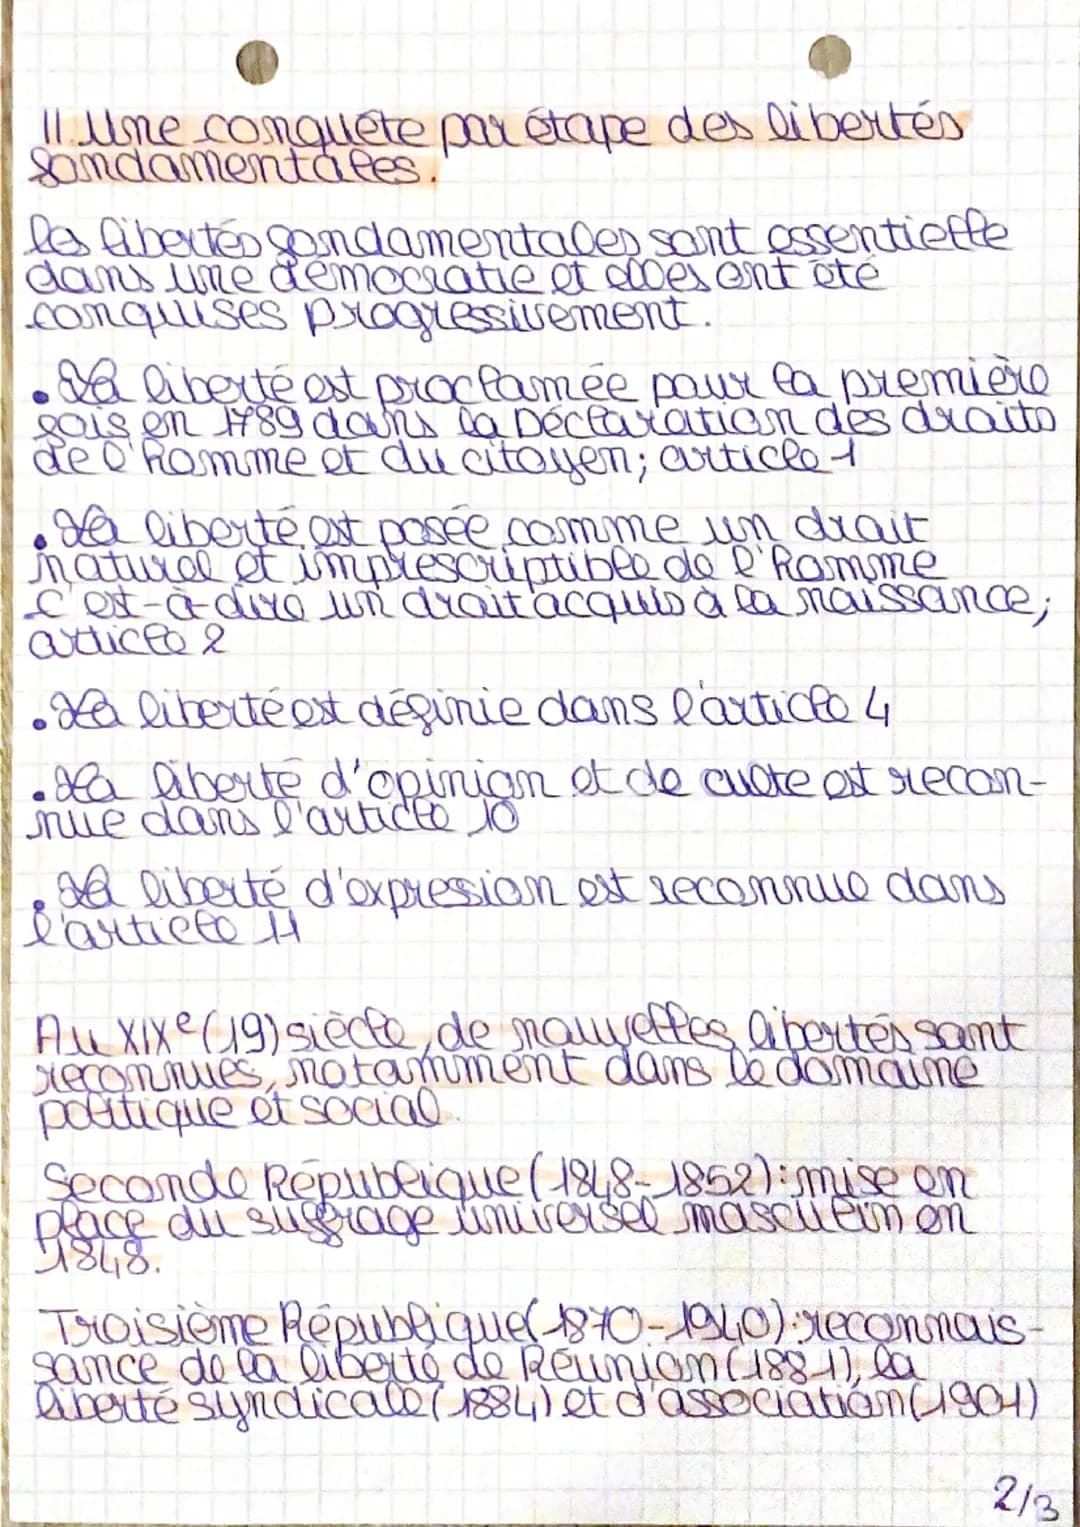 II. Une conquête par étape des libertés
fondamentales.
les libertés fondamentales sont essentielle
dans une démocratie et elles ont été
conquises progressivement.
. La liberté est proclamée pour la première
fois en 1789 dans la Déclaration des droits
de l'homme et du citoyen; article 1
. La liberté est posée comme un droit
naturel et imprescriptible de l'homme
c'est-à-dire un droit acquis à la naissance;
article 2
. La liberté est définie dans l'article 4
. La liberté d'opinion et de culte est recon-
nue dans l'article 10
. La liberté d'expression est reconnue dans
l'article 11
Au XIXe (19) siècle, de nouvelles libertés sont
reconnues, notamment dans le domaine
politique et social.
Seconde République (1848-1852): mise en
place du suffrage universel masculin en
1848.
Troisième République (1870-1940): reconnais-
sance de la liberté de Réunion (1881), la
liberté syndicale (1884) et d'association (1901)
2/3